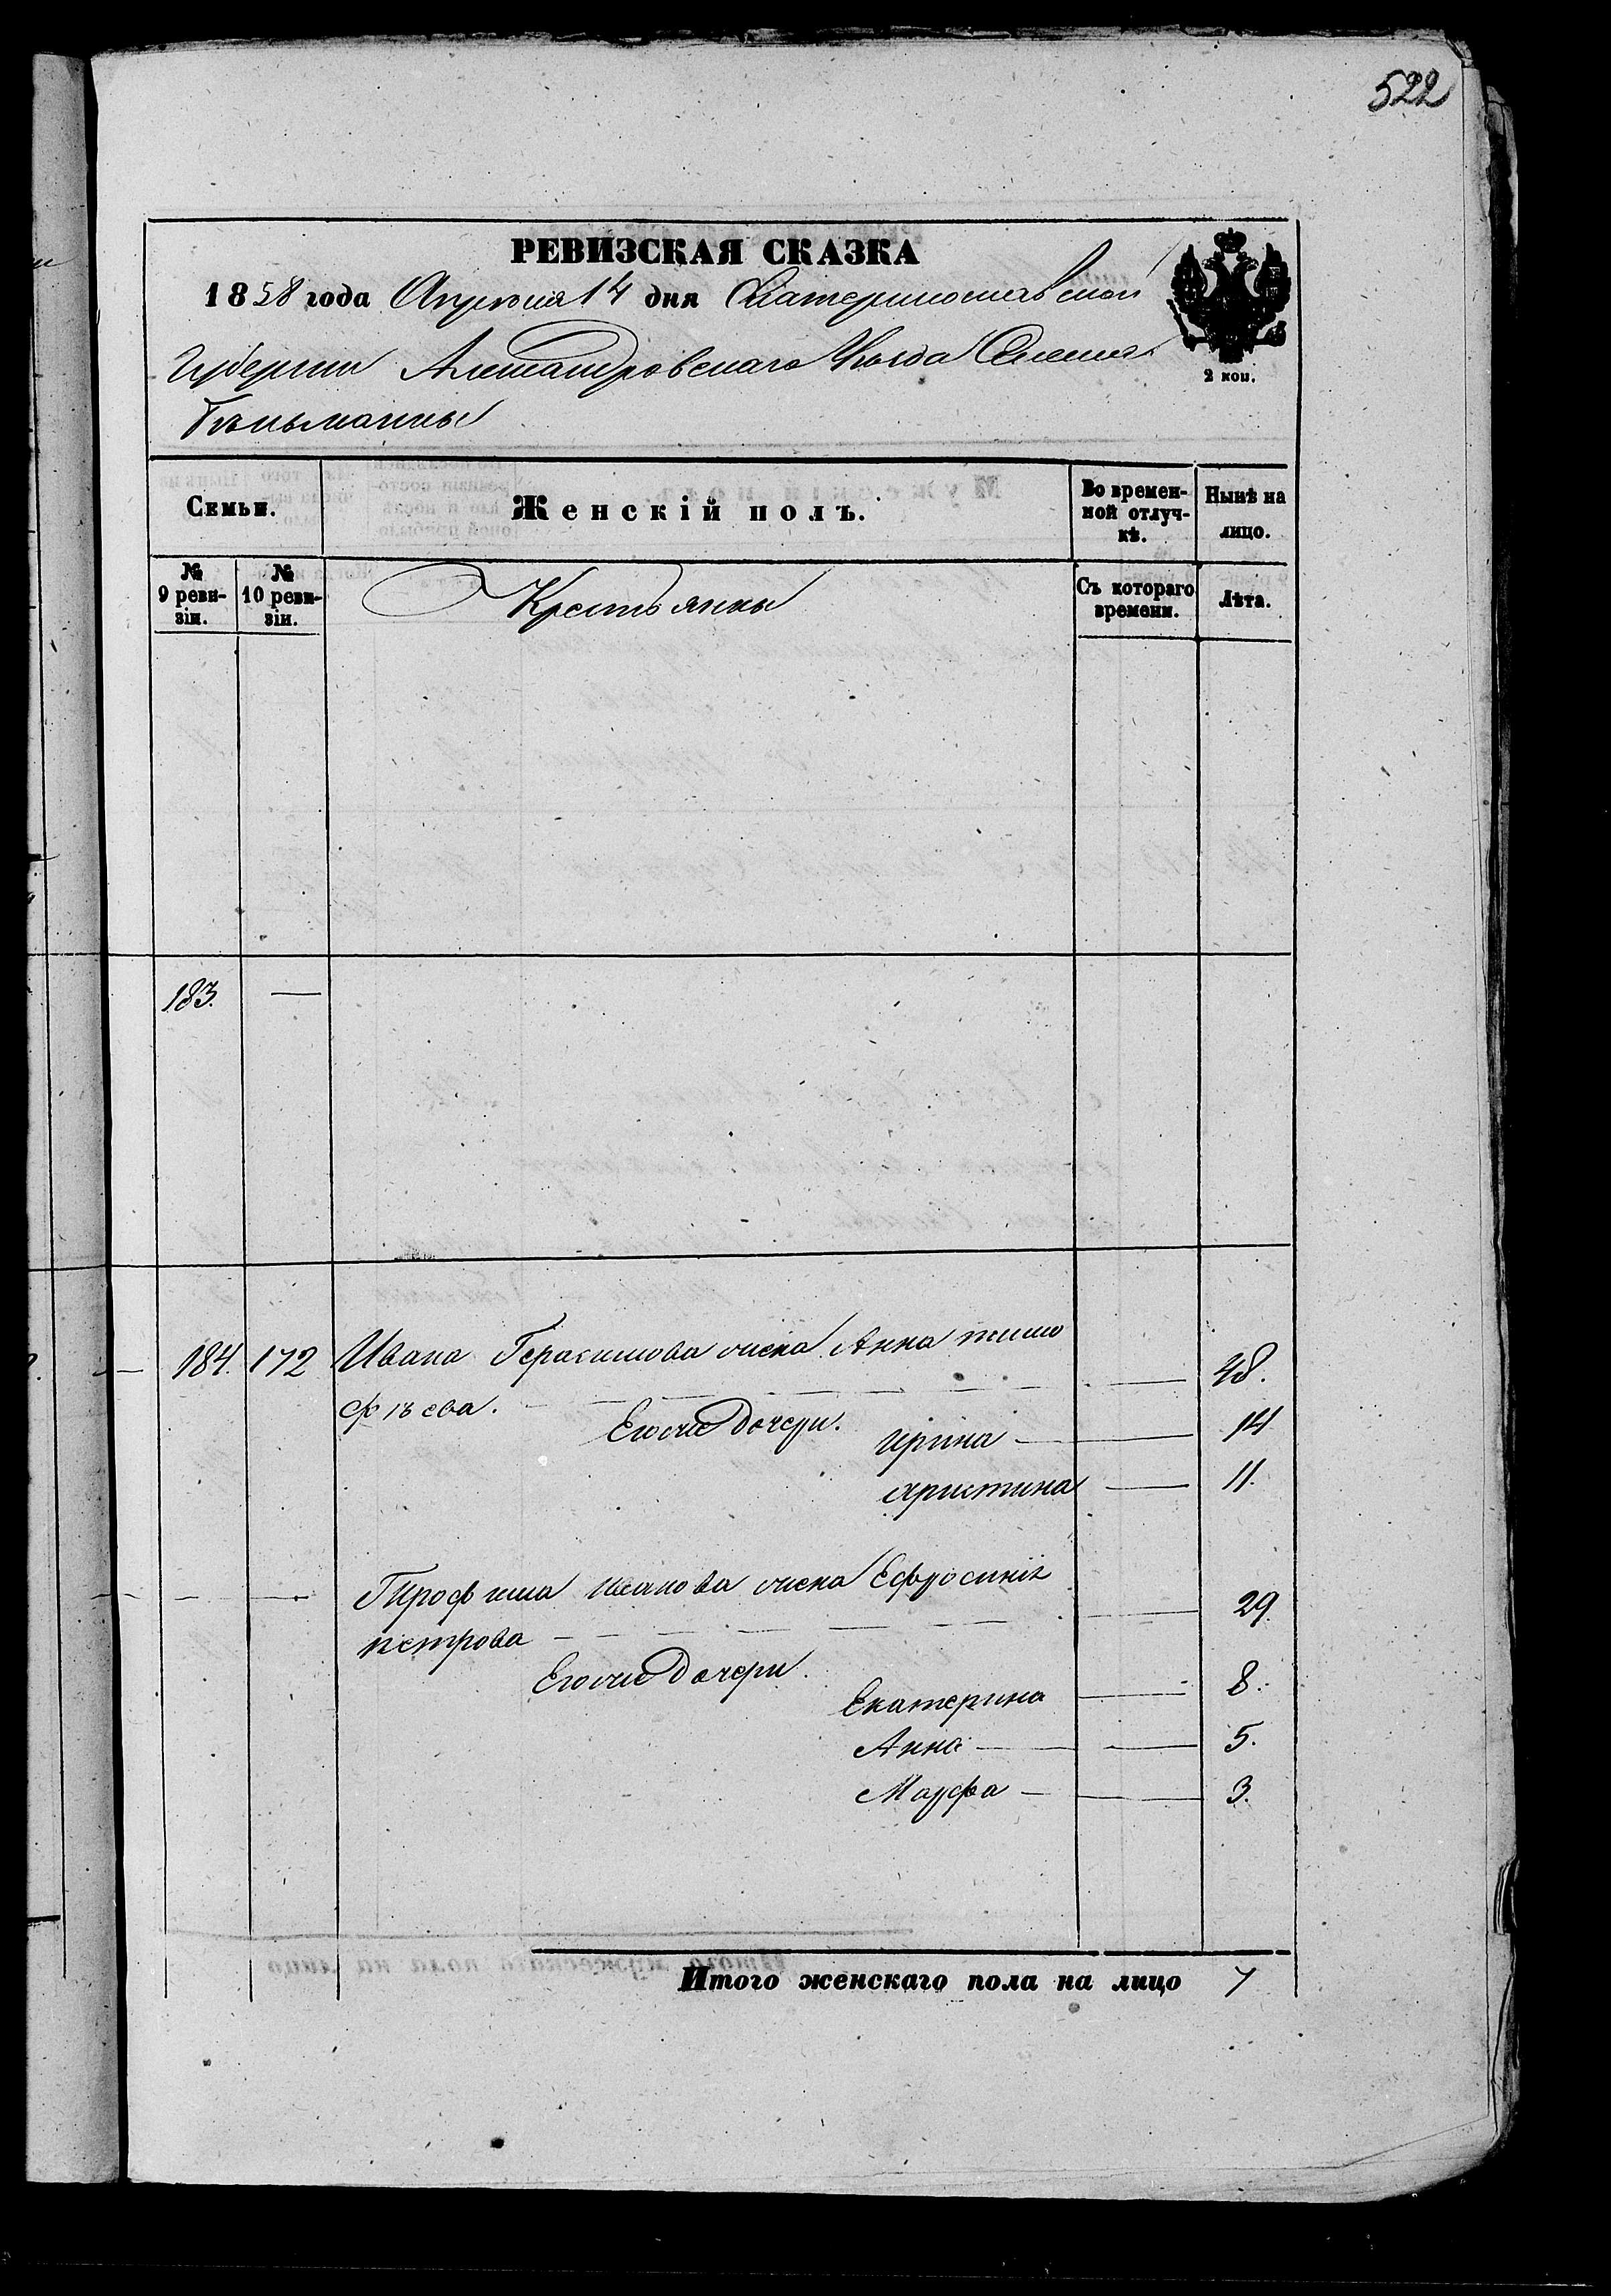 522
РЕВИЗСКАЯ СКАЗКА
1858 года Апреля 14 дня Екатеринославской
Губернии Александровскаго Уезда Селения
Гюньманны
2 коп.
Семьи. Женскій полъ. Во временной отлучкѣ. Нынѣ на лицо.
№ 9 ревизіи. № 10 ревизіи. Крестьянки Съ котораго времени. Лѣта.
183. —
184. 172 Ивана Герасимова жена Анна тимо
фѣева. — 48.
Его же дочери. Ирина — 14
христина — 11.
Трофима иванова жена Ефросинія
петрова — 29.
Его же дочери. Екатерина — 8.
Анна — 5.
Марфа — 3.
Итого женскаго пола на лицо 7